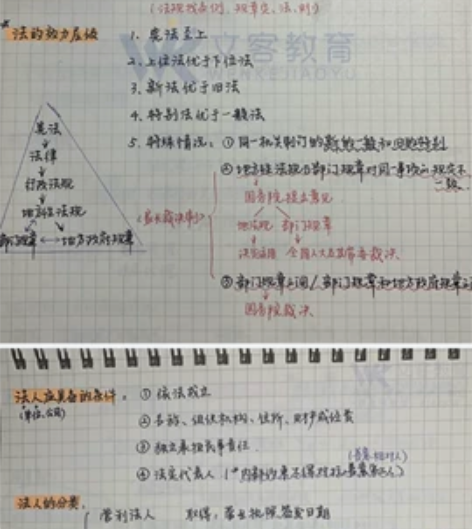 (法规找条例, 规章员、法、则)
法的效力层级
1. 宪法至上
2. 上位法优于下位法
3. 新法优于旧法
4. 特别法优于一般法
5. 特殊情况: ① 同一机关制订的新的一般和旧的特别
② 地方性法规与部门规章对同一事项的规定不一致。
国务院提出意见
地法规 部门规章
决定适用 全国人大及其常委裁决
<最长裁决制>
③ 部门规章之间/部门规章和地方政府规章之间
国务院裁决
宪法
法律
行政法规
地方性法规
部门规章 ←→ 地方政府规章
文客教育
WENKEJIAOYU
法人应具备的条件:
(单位、公司)
① 依法成立
② 名称、组织机构、住所、财产或经费
③ 独立承担民事责任
④ 法定代表人 (*内部约束不得对抗善意第三人)
(善意相对人)
法人的分类.
营利法人 取得: 营业执照签发日期